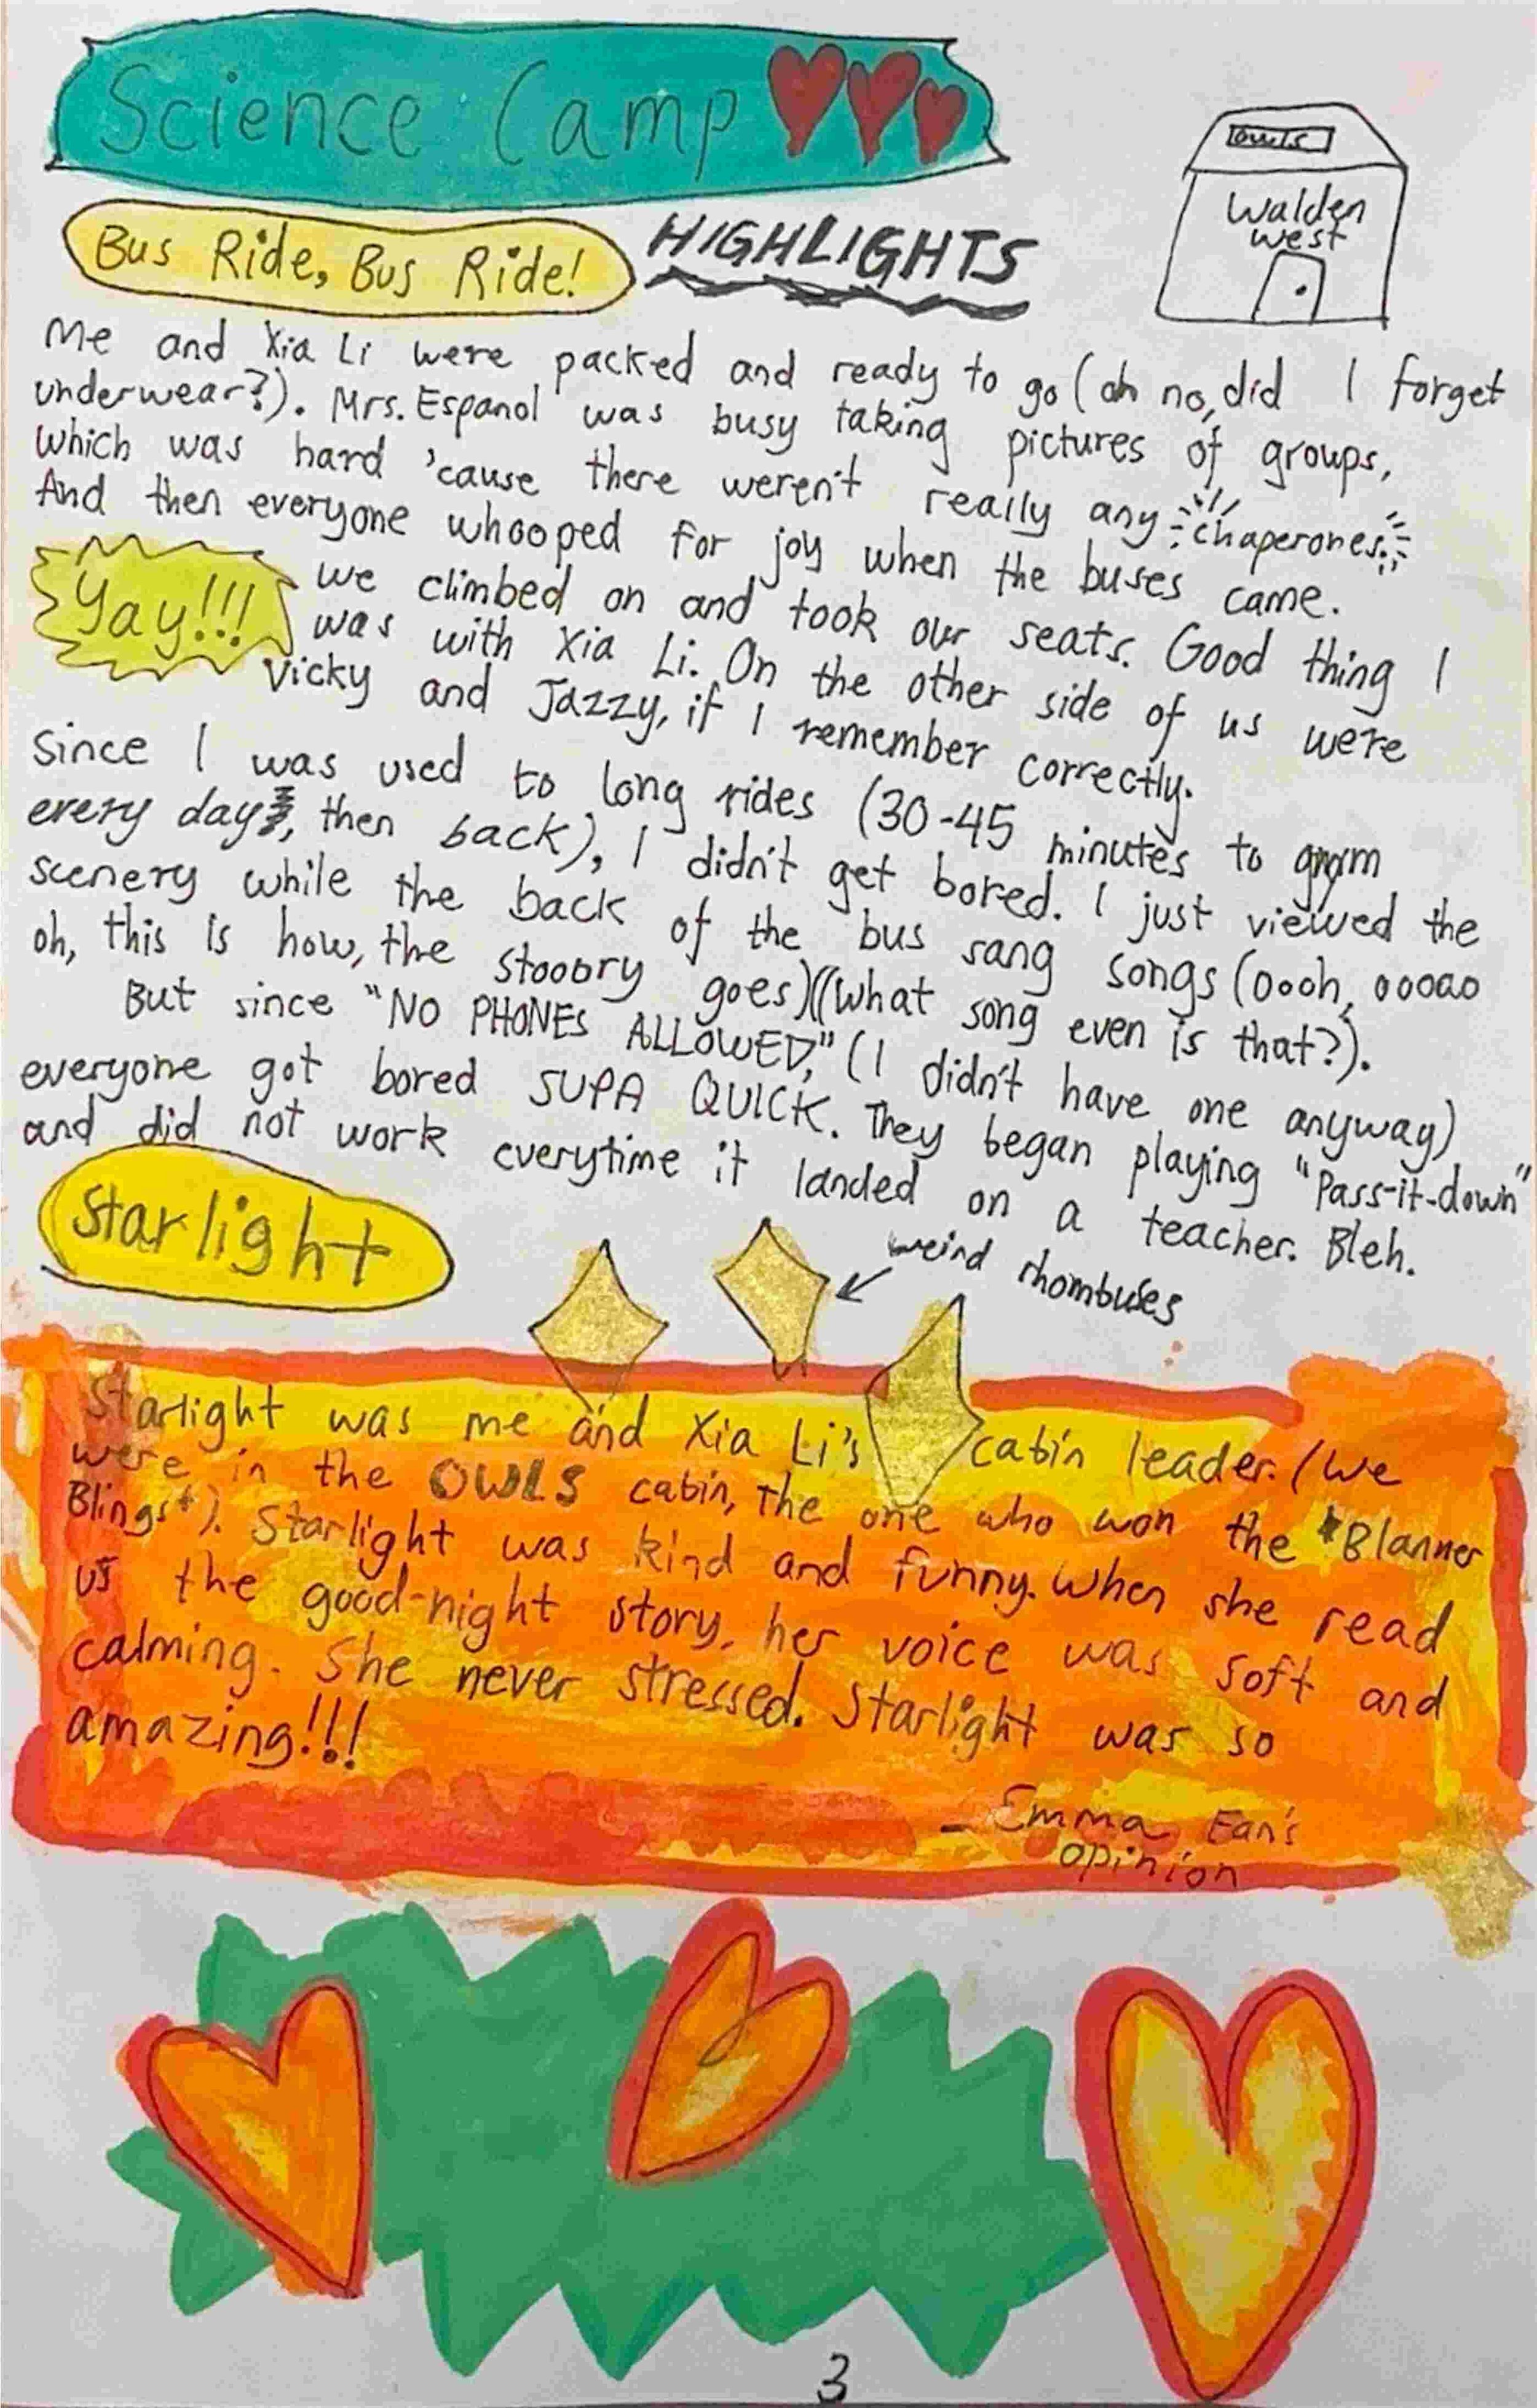 Science Camp
owls
Walden
West
Bus Ride, Bus Ride!
HIGHLIGHTS
Me and Xia Li were packed and ready to go (oh no, did I forget
underwear?). Mrs. Espanol was busy taking pictures of groups,
which was hard 'cause there weren't really any chaperones.
And then everyone whooped for joy when the buses came.
Yay!!!
We climbed on and took our seats. Good thing I
was with Xia Li. On the other side of us were
Vicky and Jazzy, if I remember correctly.
Since I was used to long rides (30-45 minutes to gym
every day, then back), I didn't get bored. I just viewed the
scenery while the back of the bus sang songs (oooh, ooooo
oh, this is how, the stooory goes)((what song even is that?).
But since "NO PHONES ALLOWED," (I didn't have one anyway)
everyone got bored SUPA QUICK. They began playing "Pass-it-down"
and did not work everytime it landed on a teacher. Bleh.
Starlight
weird rhombuses
Starlight was me and Xia Li's cabin leader. (We
were in the OWLS cabin, the one who won the *Blanner
Blings*). Starlight was kind and funny. When she read
us the good-night story, her voice was soft and
calming. She never stressed. Starlight was so
amazing!!!
- Emma Fan's
opinion
3